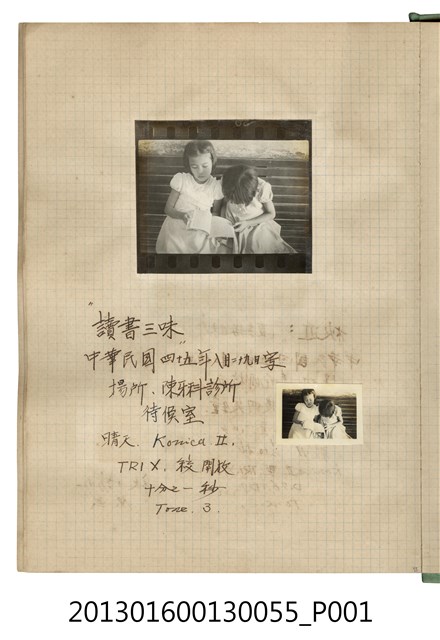 "讀書三味"
中華民国四十五年八月二十九日寫
場所、陳牙科診所
待候室
晴天、Konica II.
TRI X. 絞開放
十分之一秒
Tone. 3.
201301600130055_P001